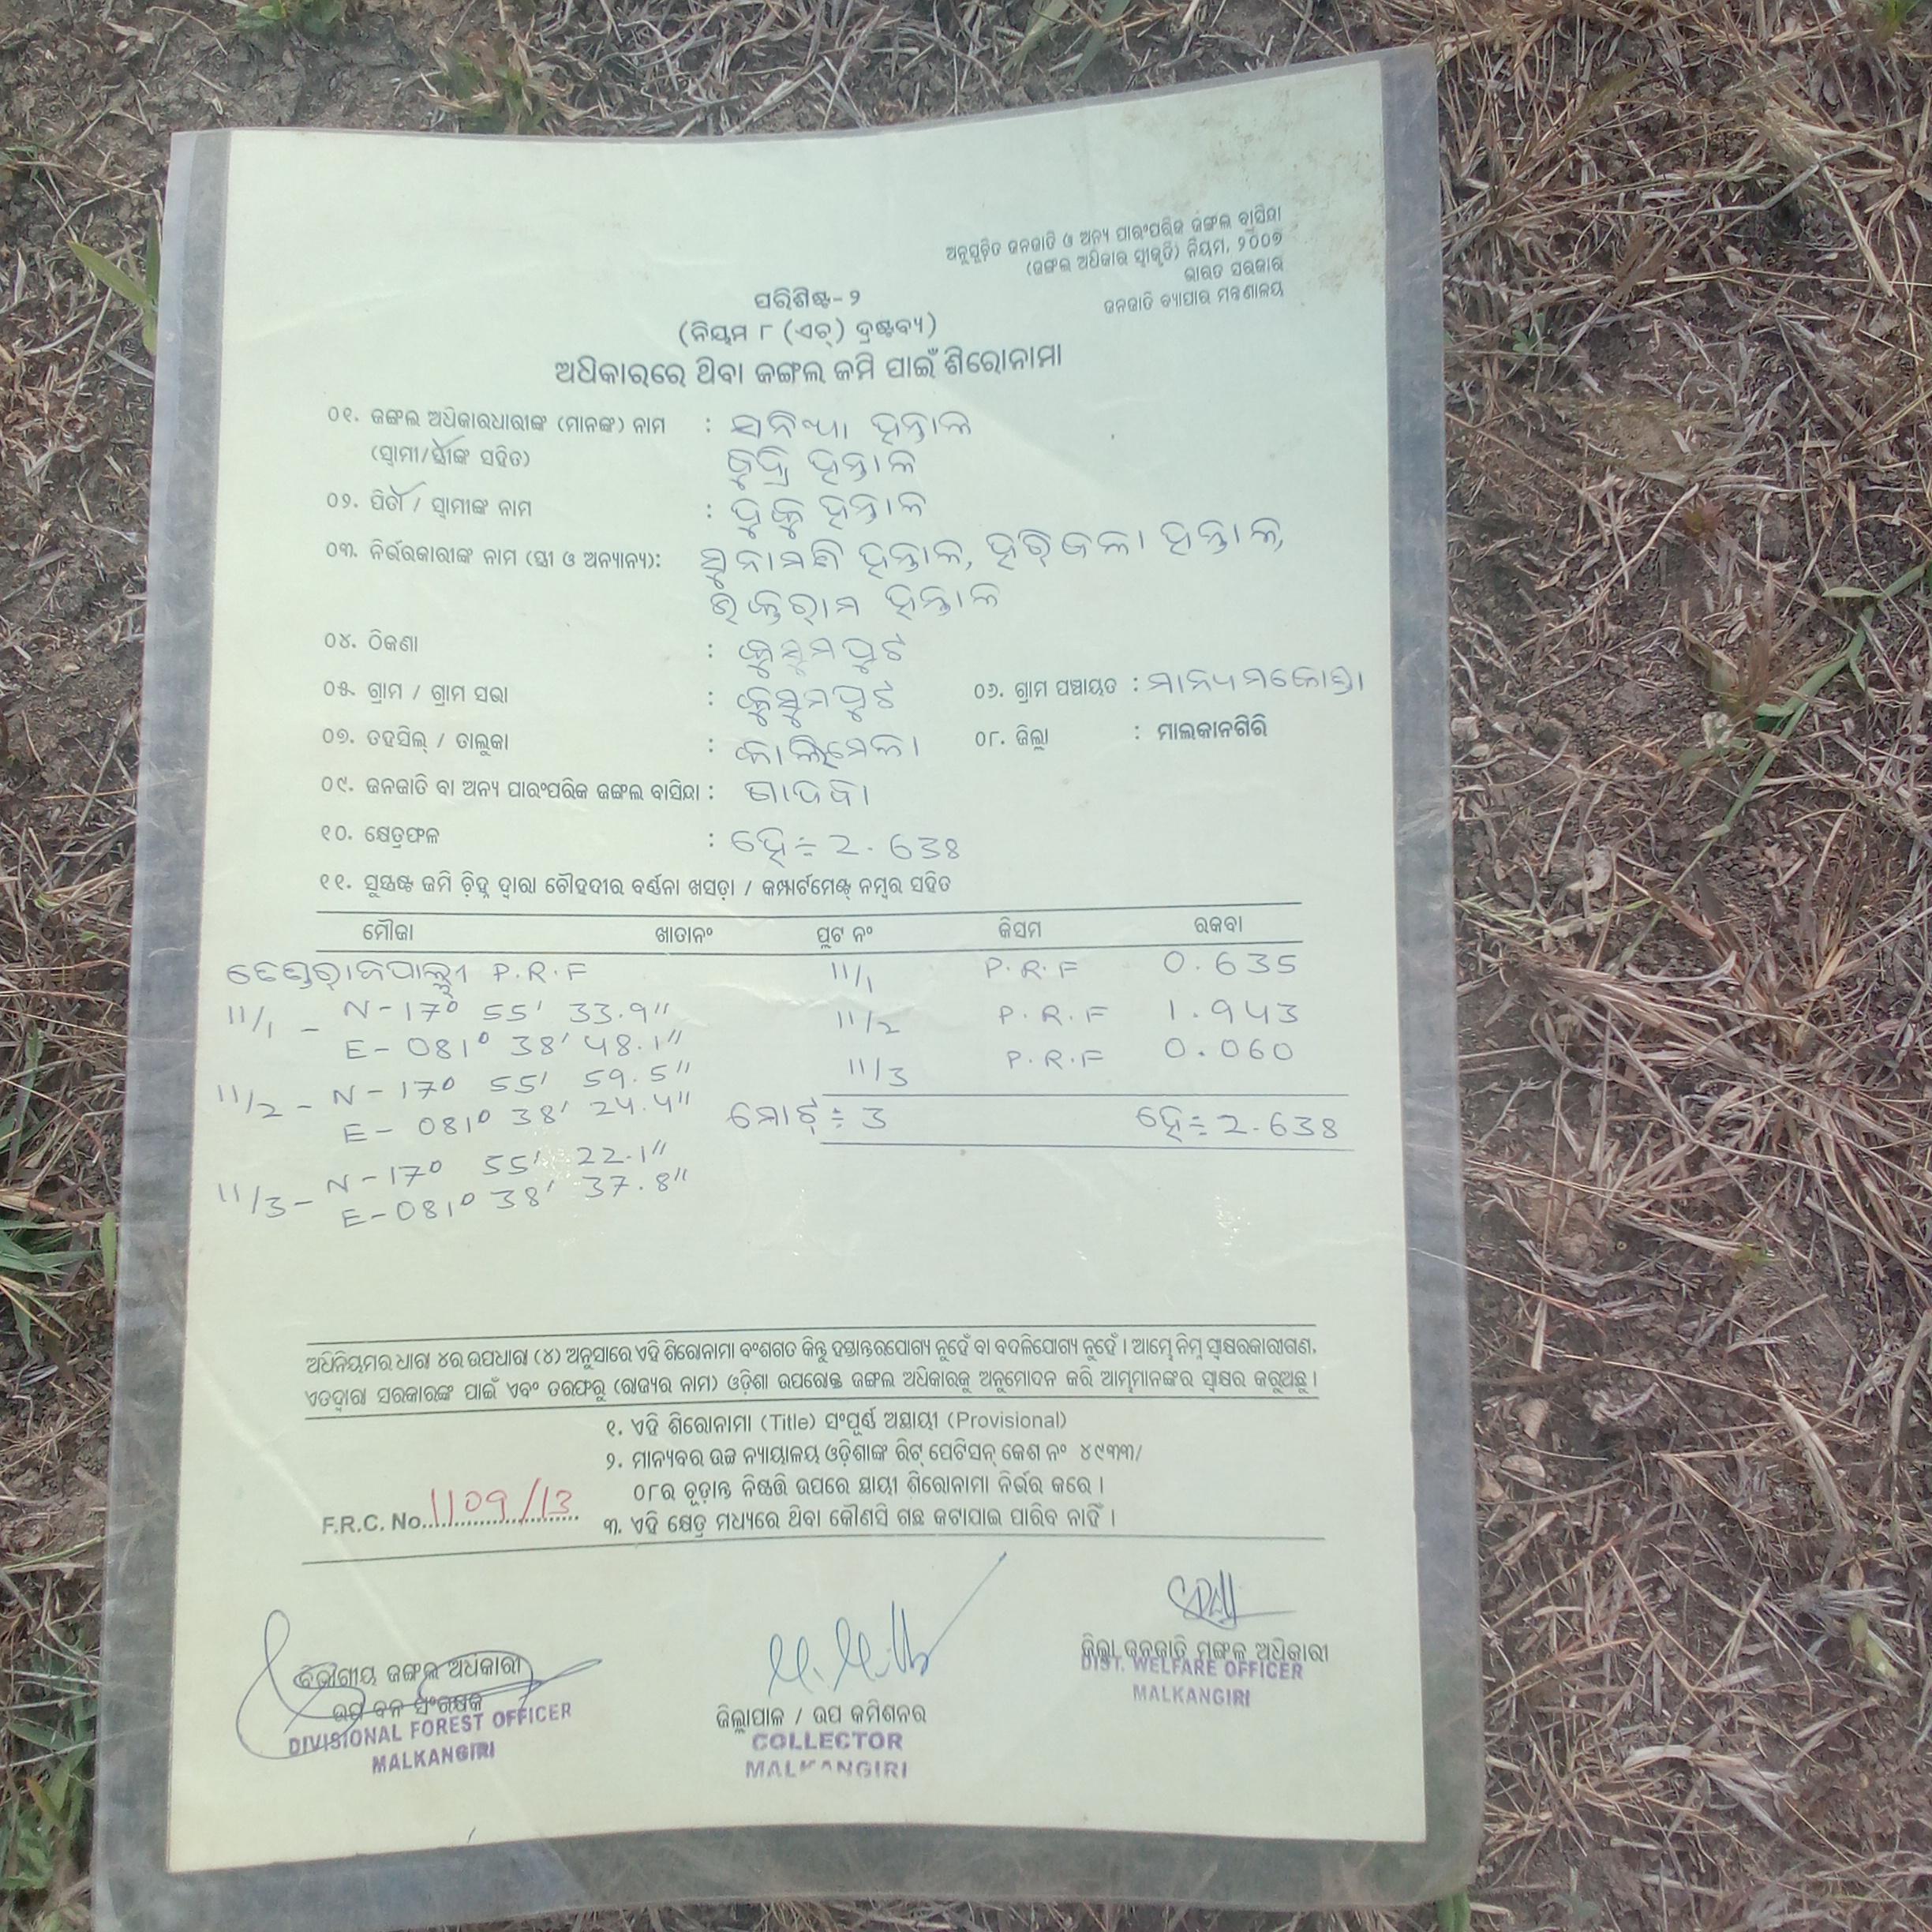 ଅନୁସୂଚିତ ଜନଜାତି ଓ ଅନ୍ୟ ପାରଂପରିକ ଜଙ୍ଗଲ ବାସିନ୍ଦା
(ଜଙ୍ଗଲ ଅଧିକାର ସ୍ୱୀକୃତି) ନିୟମ, ୨୦୦୭
ଭାରତ ସରକାର
ଜନଜାତି ବ୍ୟାପାର ମନ୍ତ୍ରଣାଳୟ
ପରିଶିଷ୍ଟ-୨
(ନିୟମ ୮ (ଏଚ୍) ଦ୍ରଷ୍ଟବ୍ୟ)
ଅଧିକାରରେ ଥିବା ଜଙ୍ଗଲ ଜମି ପାଇଁ ଶିରୋନାମା
୦୧. ଜଙ୍ଗଲ ଅଧିକାରଧାରୀଙ୍କ (ମାନଙ୍କ) ନାମ : ସନିଆ ହନ୍ତାଳ
(ସ୍ୱାମୀ/ସ୍ତ୍ରୀଙ୍କ ସହିତ) ହନ୍ତାଳ
୦୨. ପିତା / ସ୍ୱାମୀଙ୍କ ନାମ : ହନ୍ତାଳ
୦୩. ନିର୍ଭରକାରୀଙ୍କ ନାମ (ସ୍ତ୍ରୀ ଓ ଅନ୍ୟାନ୍ୟ): ହନ୍ତାଳ, ହନ୍ତାଳ,
ହନ୍ତାଳ
୦୪. ଠିକଣା : କୁସୁମପୁଟ
୦୫. ଗ୍ରାମ / ଗ୍ରାମ ସଭା : କୁସୁମପୁଟ ୦୬. ଗ୍ରାମ ପଞ୍ଚାୟତ : ମାନ୍ୟମକୋଣ୍ଡା
୦୭. ତହସିଲ୍ / ତାଲୁକା : କାଲିମେଳା ୦୮. ଜିଲ୍ଲା : ମାଲକାନଗିରି
୦୯. ଜନଜାତି ବା ଅନ୍ୟ ପାରଂପରିକ ଜଙ୍ଗଲ ବାସିନ୍ଦା : ଗାଦବା
୧୦. କ୍ଷେତ୍ରଫଳ : ହେ÷ 2.638
୧୧. ସୁସ୍ପଷ୍ଟ ଜମି ଚିହ୍ନ ଦ୍ୱାରା ଚୌହଦୀର ବର୍ଣ୍ଣନା ଖସଡ଼ା / କମ୍ପାର୍ଟମେଣ୍ଟ ନମ୍ବର ସହିତ
ମୌଜା ଖାତାନଂ ପ୍ଲଟ ନଂ କିସମ ରକବା
P.R.F 11/1 P.R.F 0.635
11/1 - N-17° 55' 33.9" 11/2 P.R.F 1.943
E-081° 38' 48.1"
11/2 - N-17° 55' 59.5" 11/3 P.R.F 0.060
E-081° 38' 24.4" ମୋଟ୍ ÷ 3 ହେ÷ 2.638
11/3 - N-17° 55' 22.1"
E-081° 38' 37.8"
ଅଧିନିୟମର ଧାରା ୪ର ଉପଧାରା (୪) ଅନୁସାରେ ଏହି ଶିରୋନାମା ବଂଶଗତ କିନ୍ତୁ ହସ୍ତାନ୍ତରଯୋଗ୍ୟ ନୁହେଁ ବା ବଦଳିଯୋଗ୍ୟ ନୁହେଁ । ଆମ୍ଭେ ନିମ୍ନ ସ୍ୱାକ୍ଷରକାରୀଗଣ,
ଏତଦ୍ୱାରା ସରକାରଙ୍କ ପାଇଁ ଏବଂ ତରଫରୁ (ରାଜ୍ୟର ନାମ) ଓଡ଼ିଶା ଉପରୋକ୍ତ ଜଙ୍ଗଲ ଅଧିକାରକୁ ଅନୁମୋଦନ କରି ଆମ୍ଭମାନଙ୍କର ସ୍ୱାକ୍ଷର କରୁଅଛୁ ।
୧. ଏହି ଶିରୋନାମା (Title) ସଂପୂର୍ଣ୍ଣ ଅସ୍ଥାୟୀ (Provisional)
୨. ମାନ୍ୟବର ଉଚ୍ଚ ନ୍ୟାୟାଳୟ ଓଡ଼ିଶାଙ୍କ ରିଟ୍ ପେଟିସନ୍ କେଶ ନଂ ୪୯୩୩/
୦୮ର ଚୂଡ଼ାନ୍ତ ନିଷ୍ପତ୍ତି ଉପରେ ସ୍ଥାୟୀ ଶିରୋନାମା ନିର୍ଭର କରେ ।
F.R.C. No. 1109/13
୩. ଏହି କ୍ଷେତ୍ର ମଧ୍ୟରେ ଥିବା କୌଣସି ଗଛ କଟାଯାଇ ପାରିବ ନାହିଁ ।
ବିଭାଗୀୟ ଜଙ୍ଗଲ ଅଧିକାରୀ
ଉପ ବନ ସଂରକ୍ଷକ
DIVISIONAL FOREST OFFICER
MALKANGIRI
ଜିଲ୍ଲାପାଳ / ଉପ କମିଶନର
COLLECTOR
MALKANGIRI
ଜିଲ୍ଲା ଜନଜାତି ମଙ୍ଗଳ ଅଧିକାରୀ
DIST. WELFARE OFFICER
MALKANGIRI